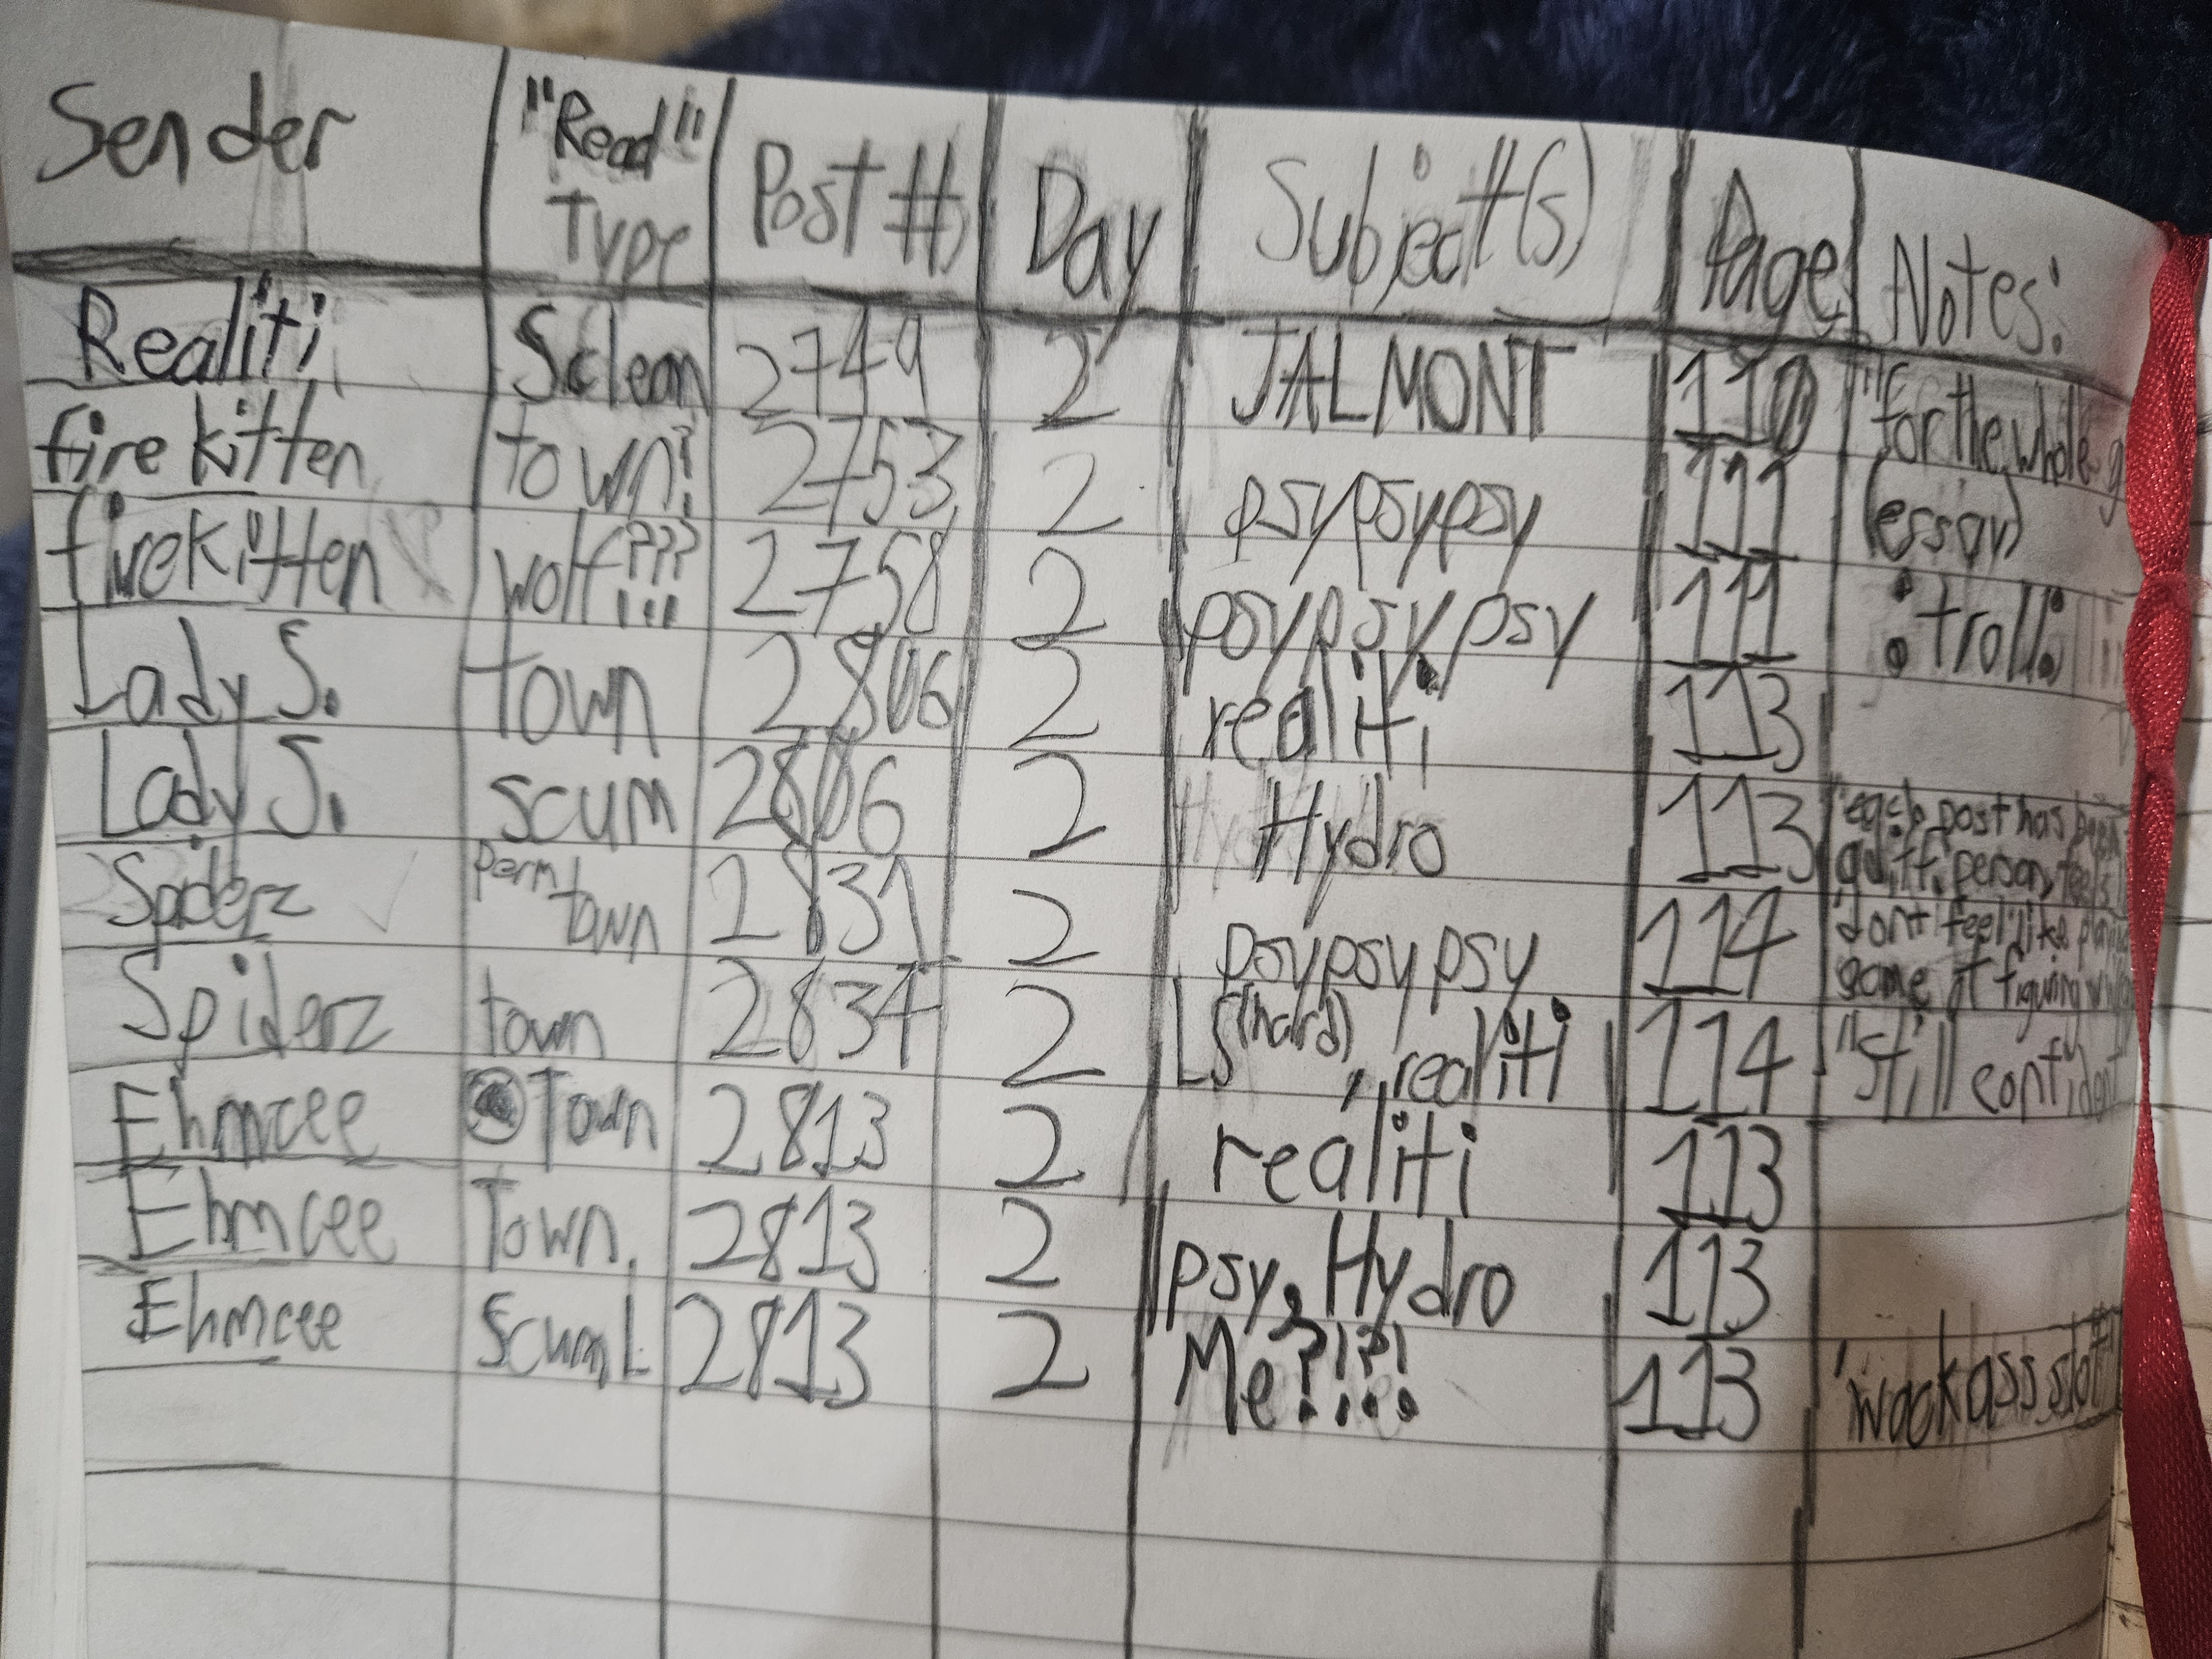 Sender "Read" Type Post # Day Subject(s) Page Notes:
Realiti Sclean 2749 2 JALMONT 110 "for the whole g
fire kitten town?! 2753 2 psypsypsy 111 (essay)
firekitten wolf???!!! 2758 2 psypsypsy 111 :troll:
Lady S. town 2806 2 realiti 113
Lady S. scum 2806 2 Hydro 113 "each post has been
Spiderz perm town 2831 2 psypsypsy 114 "dont feel like
game of figuring
Spiderz town 2834 2 LS(hard), realiti 114 "still confident
Ehmcee Town 2813 2 realiti 113
Ehmcee Town. 2813 2 psy, Hydro 113
Ehmcee ScumL 2813 2 Me?!?! 113 'wack ass slot"